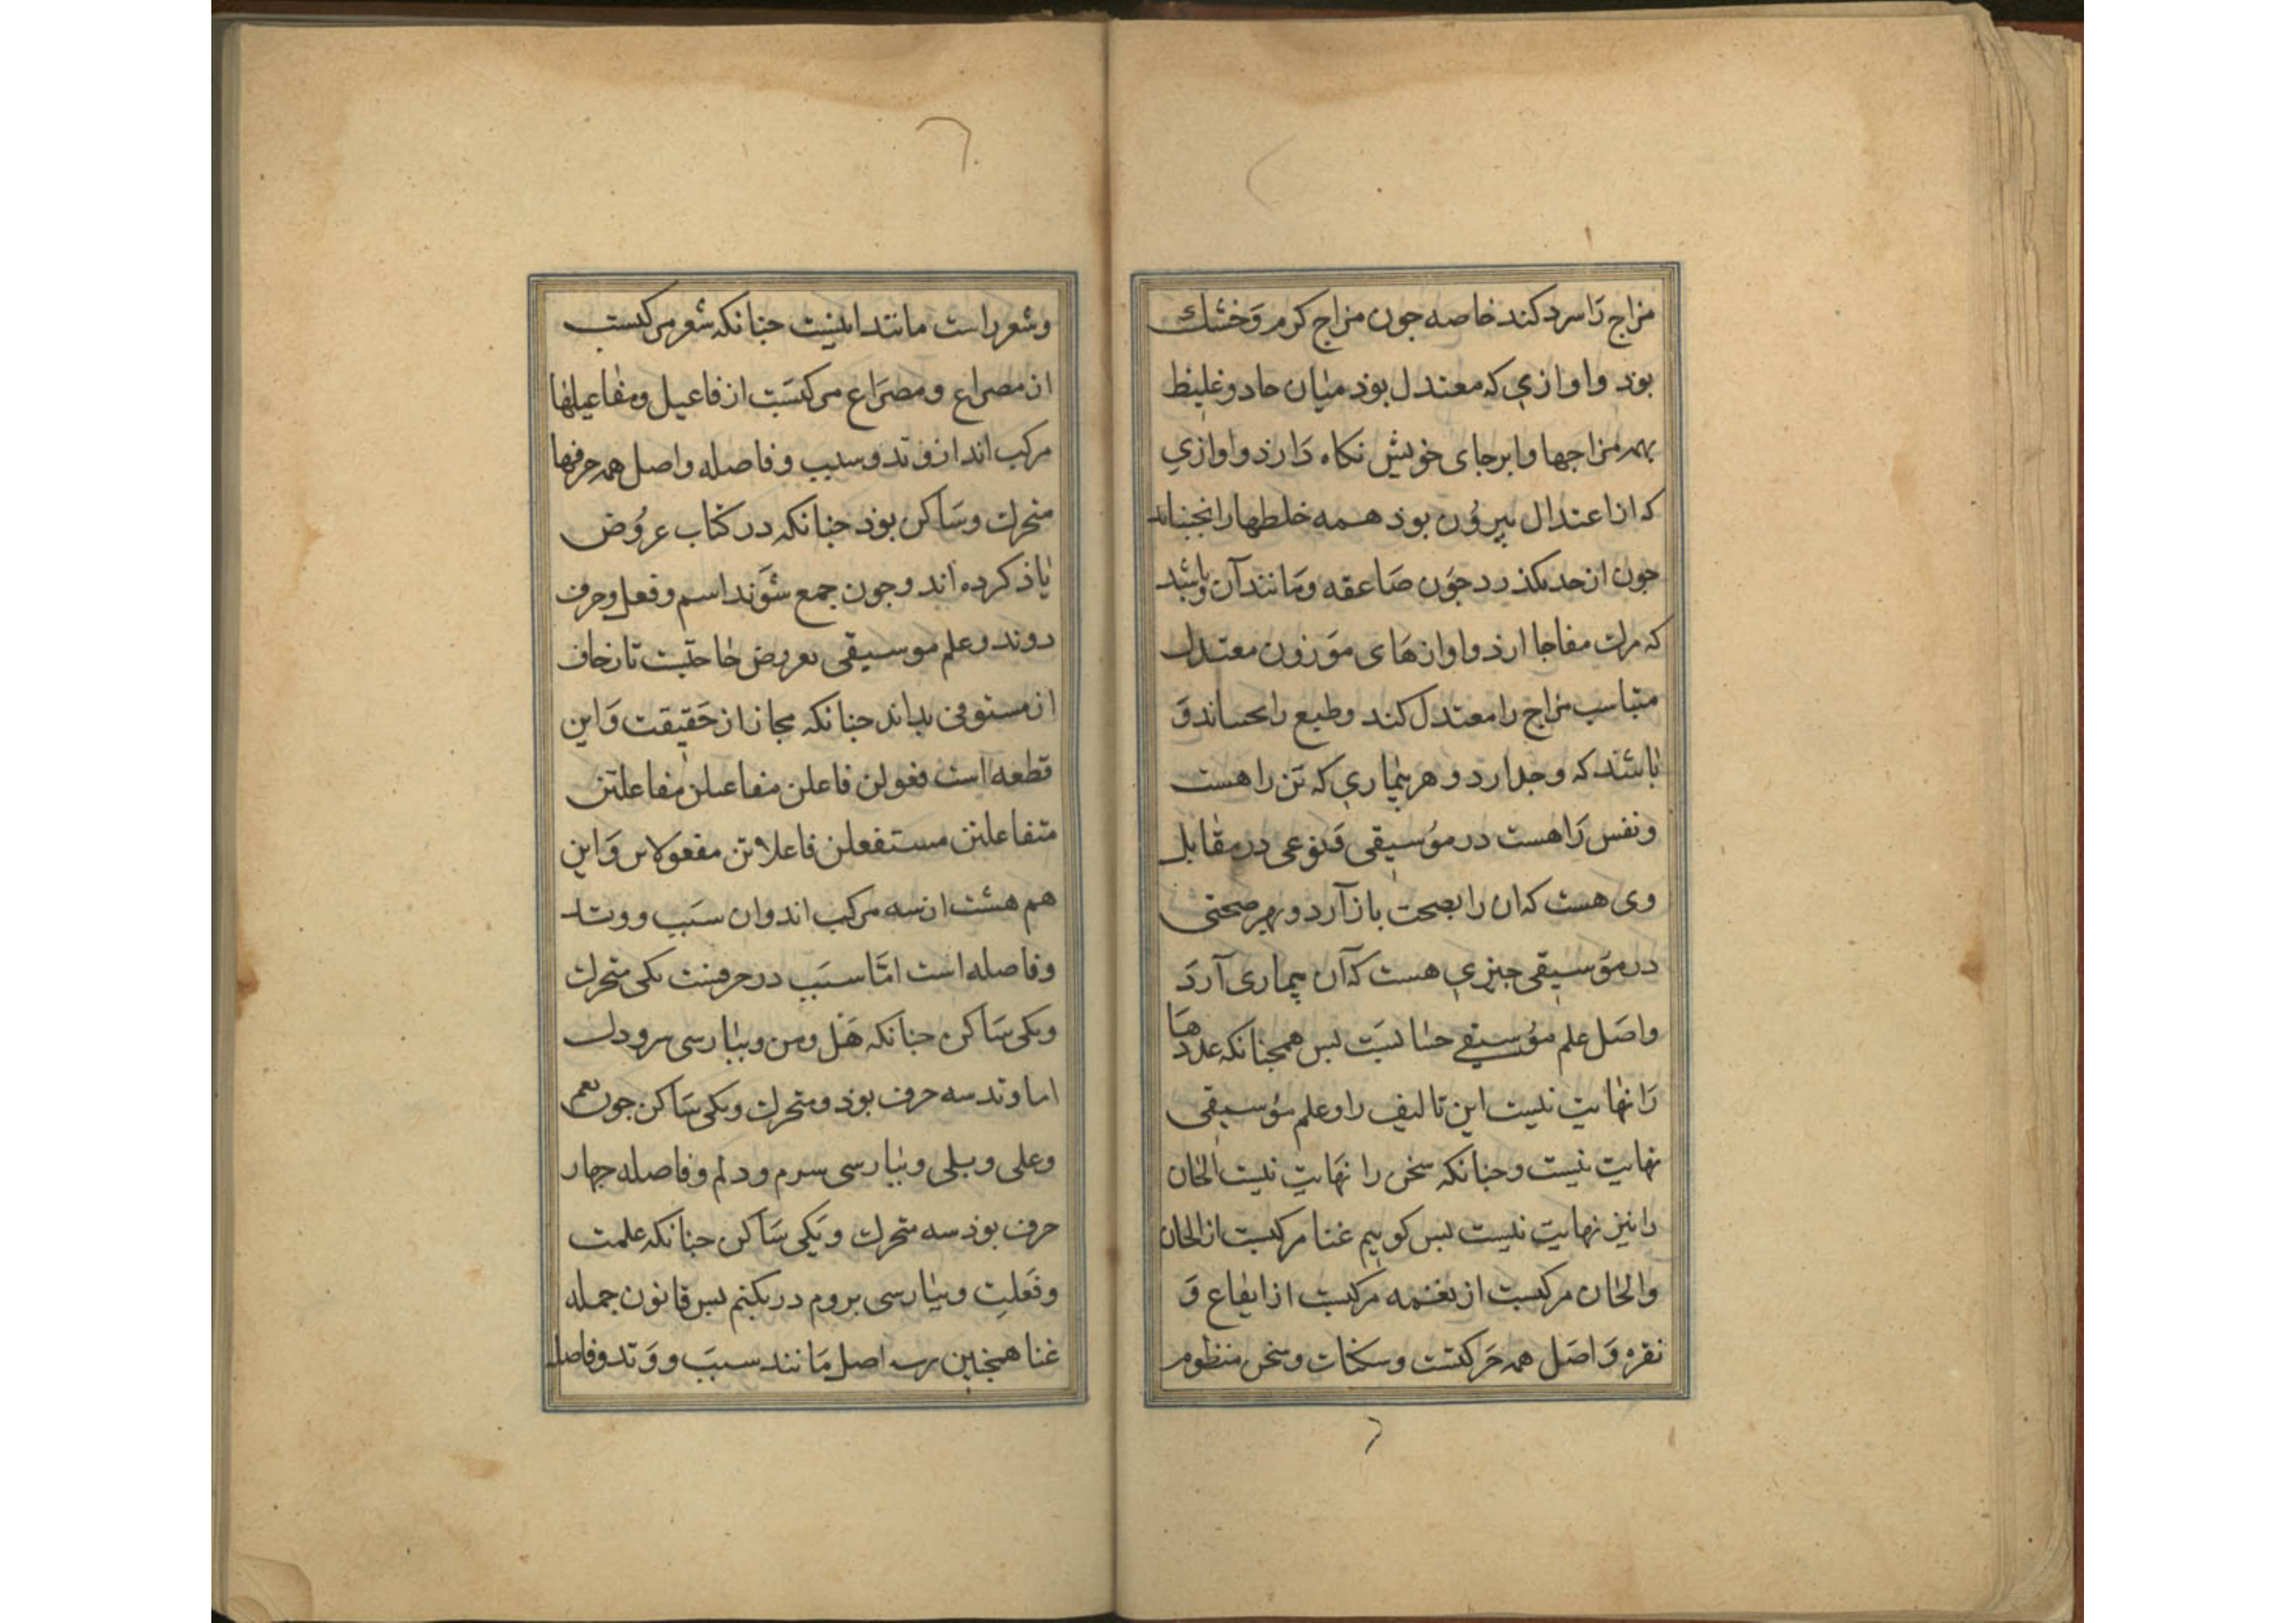 مزاج رَا سرد کند خاصه جون مزاج کرم وَخشك
بوذ واوازي که معتدل بوذ میان حاد وغلیظ
همه مزاجها وابرجای خویش نکاه دَارذ واوازي
که از اعتدال بیرُون بوذ همسه خلطهارا بجنباند
جون از حد بکذرد جوَن صَاعقه ومَانند آن وباشد
که مرك مفاجا ارذ واوازهَای موَزون معتدل
متناسب مزاج را معتدل کند وطبع را وَ
باشد که وجدارد وهر بیماري که تن را هست
ونفس رَا هست در موُسیقی وَنوعی در مقابل
وی هست که ان را بصحت بازآرد وبهر صحتی
در موَسیقی جیزي هست که آن بیماری آردَ
واصَل علم موُسیقی حسابیَست بس همجنانکه عددهَا
رَا نهایت نیست این تالیف را وعلم موُسیقی
نهایت نیست وجنانکه سخن را نهَایت نیست الحان
را نیز نهایت نیست بس کوییم غنا مرکبست از الحان
والحان مرکبست از نغمه مرکبست از ایقاع وَ
نقره وَاصَل همه حَرکتست وسکنات وسخن منظوم
وشعر راست مانند اینست جنانکه شعر مرکبست
از مصراع ومصرَاع مرکبسَت از فاعیل ومفاعیلها
مرکب اند از وتد وسبب وفاصله واصل همه حرفها
متحرك وسَاکن بوذ جنانکه در کتاب عروُض
یاذ کرده اند وجون جمع شوَند اسم وفعل وحرف
روند وعلم موسیقی بعریض حاجتست تا زحاف
از مستوفی بداند جنانکه مجاز از حَقیقت وَاین
قطعه است فعولن فاعلن مفاعیلن مفاعلتن
متفاعلتن مستفعلن فاعلاتن مفعوَلات وَاین
هم هشت از سه مرکب اند وان سبَب ووتد
وفاصله است امَّا سبَب در حرفست یکی متحرك
ویکی سَاکن جنانکه هَل ومن وبپارسی سر ودل
اما وتد سه حرف بوذ ومتحرك ویکی سَاکن جون نعم
وعلی وبلی وبپارسی سرم ودلم وفاصله جهار
حرف بوذ سه متحرك ویَکی سَاکن جنانکه علمت
وفَعلت وبپارسی بروم دربکنم بس قانون جمله
غنا همجنین برسه اصل مَانند سببَ ووَتد وفاصله